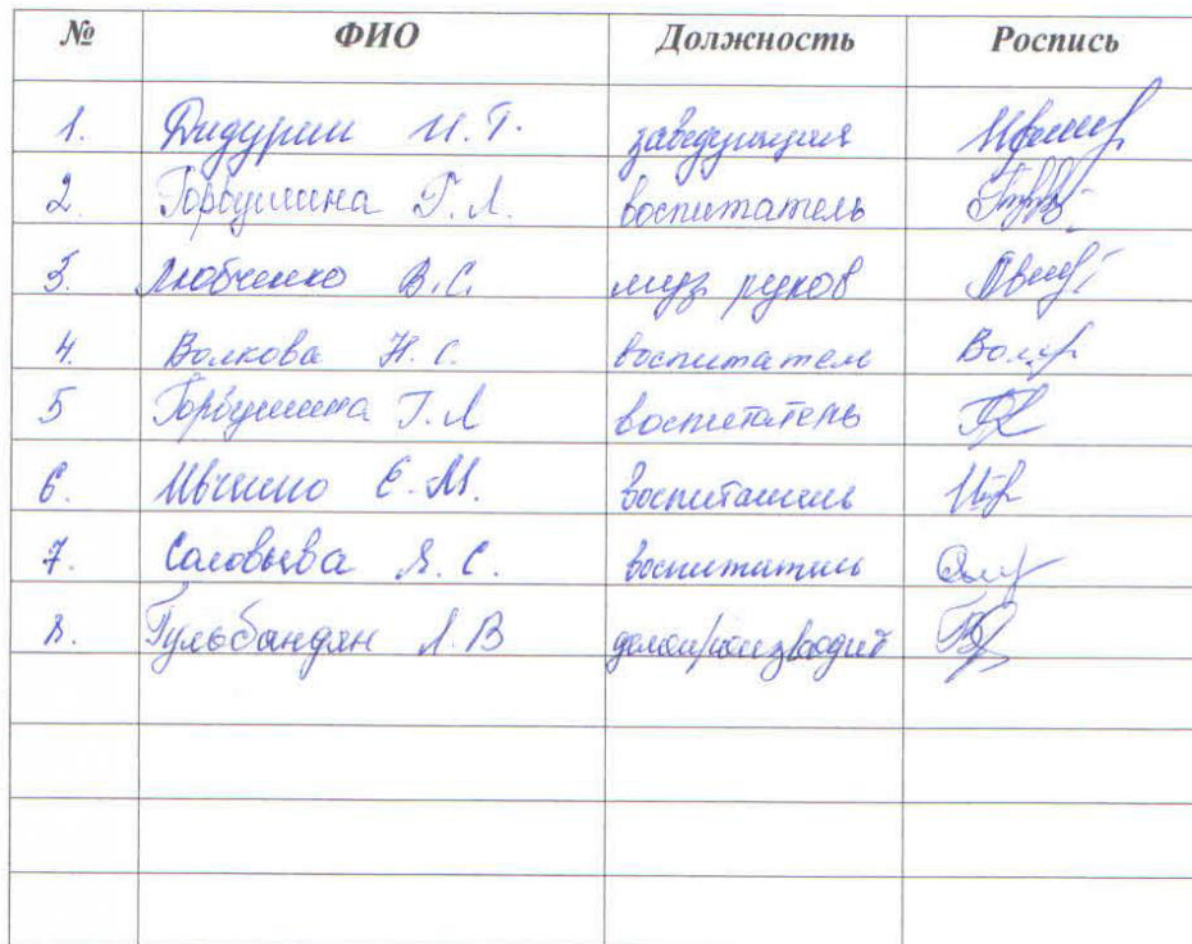 № ФИО Должность Роспись
1. Дидурин И. Г. заведующая
2. Горбушина Г. Л. воспитатель
3. Любченко В. С. муз руков
4. Волкова Н. С. воспитател
5 Горбушина Г. Л воспитатель
6. Е. М. воспитатель
7. Соловьева Я. С. воспитатель
8. Гульбандян Л. В